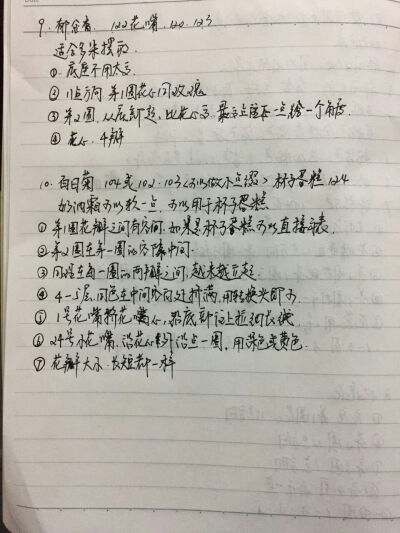 9. 郁金香. 122花嘴. 120. 123
适合多朵摆放.
①. 底座不用太高.
② 11点方向 第1圈花心同玫瑰
③ 第2圈, 从底部起, 比花心高 最高点压下一点给一个角度.
④ 花心. 4瓣
10. 百日菊 104或102. 103(可以做小点缀) 杯子蛋糕 124
奶油霜可以软一点. 可以用于杯子蛋糕
① 第1圈花瓣之间有空间. 如果是杯子蛋糕可以直接上表.
② 第2圈在第一圈的空隙中间.
③ 同样在每一圈的两瓣之间, 越来越立起.
④ 4-5层, 同色在中间空白处挤满, 用转换头即可
⑤ 1号花嘴挤花心, 沿底部往上拉细长线
⑥ 24号小花嘴, 沿花心外沿点一圈. 用绿色或黄色.
⑦ 花瓣大小. 长短都一样